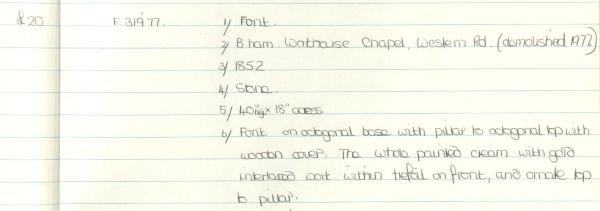 £20 F.31977. 1/ Font.
2/ B.ham. Workhouse Chapel, Western Rd. (demolished 1977)
3/ 1852
4/ Stone.
5/ 40" high x 18" across
6/ Font on octagonal base with pillar to octagonal top with
wooden cover. The whole painted cream with gold
interlaced work within trefoil on front, and ornate top
to pillar.